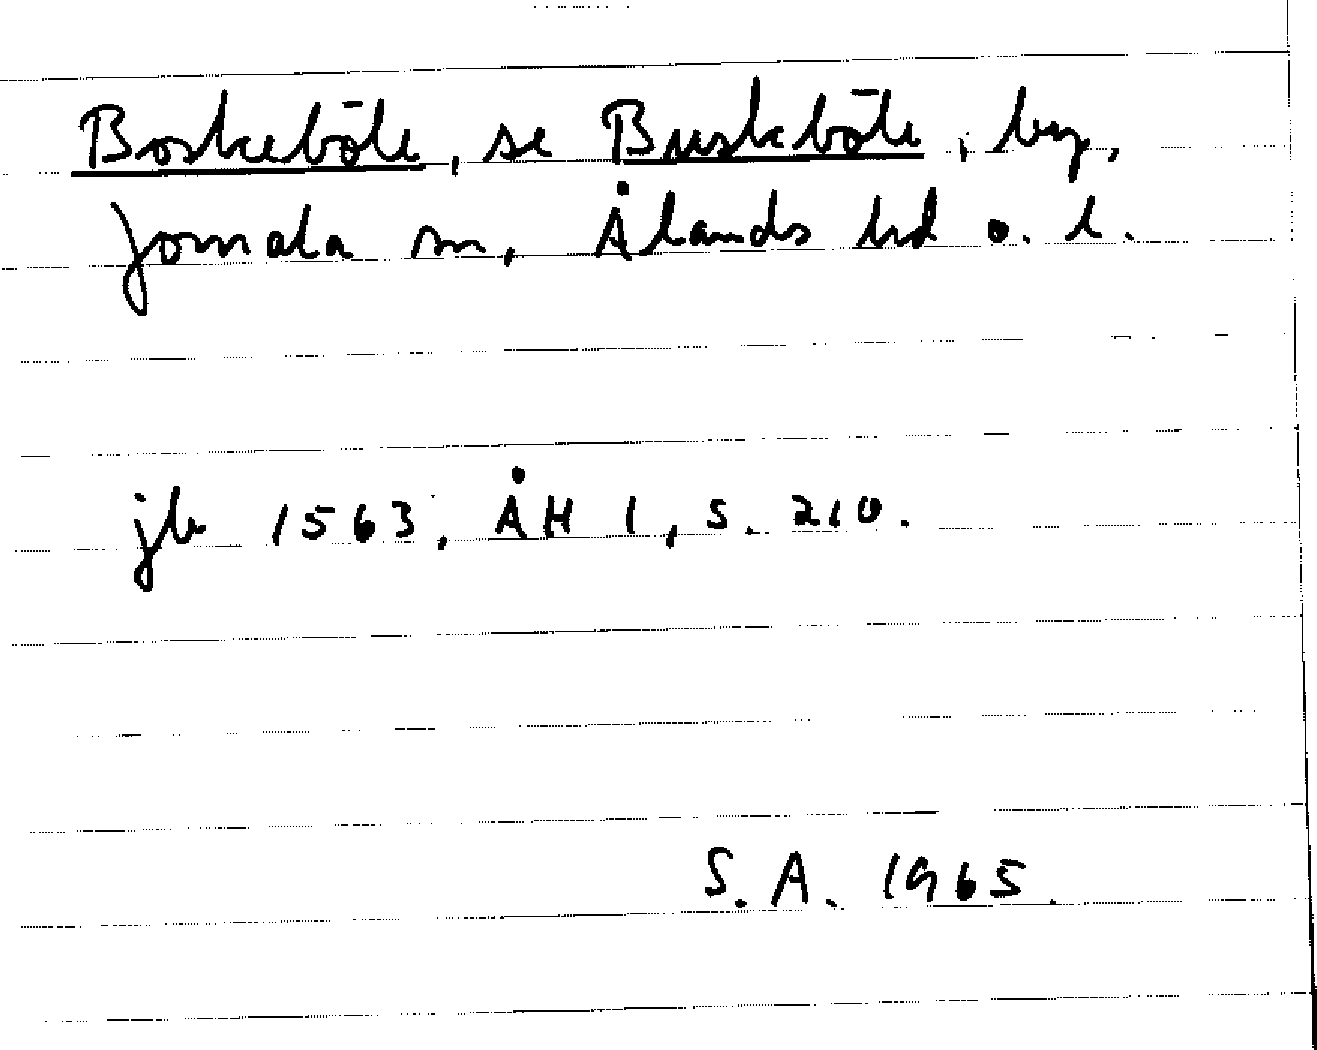 Boskeböle, se Buskböle, by,
Jomala sn, Ålands hd o. l.
jb 1563, ÅH 1, s. 210.
S. A. 1965.